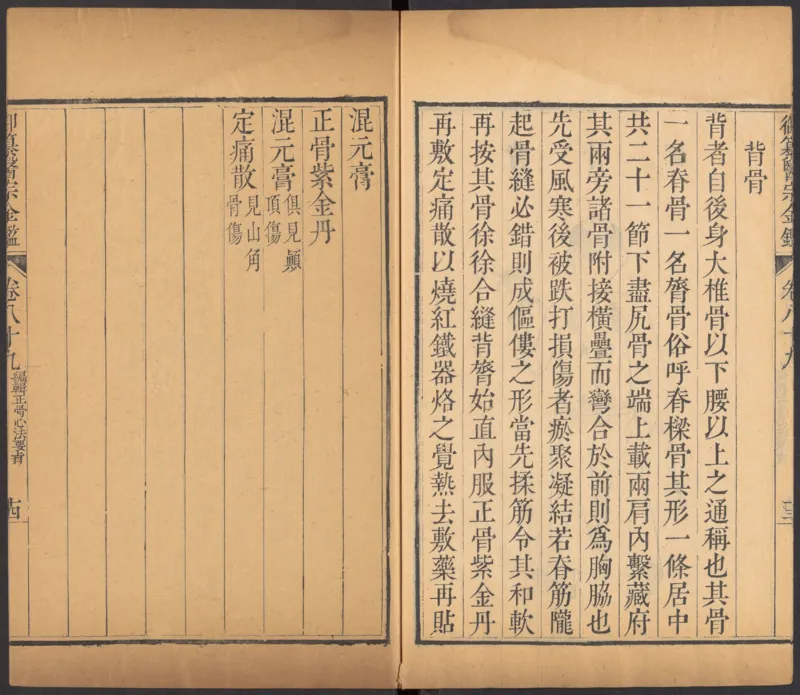 御纂醫宗金鑑 卷八十九 十三
背骨
背者自後身大椎骨以下腰以上之通稱也其骨
一名脊骨一名膂骨俗呼脊樑骨其形一條居中
共二十一節下盡尻骨之端上載兩肩內繫藏府
其兩旁諸骨附接橫疊而彎合於前則爲胸脇也
先受風寒後被跌打損傷者瘀聚凝結若脊筋隴
起骨縫必錯則成傴僂之形當先揉筋令其和軟
再按其骨徐徐合縫背膂始直內服正骨紫金丹
再敷定痛散以燒紅鐵器烙之覺熱去敷藥再貼
混元膏
正骨紫金丹
混元膏俱見顚頂傷
定痛散見山角骨傷
御纂醫宗金鑑 卷八十九 編輯正骨心法要旨 十四